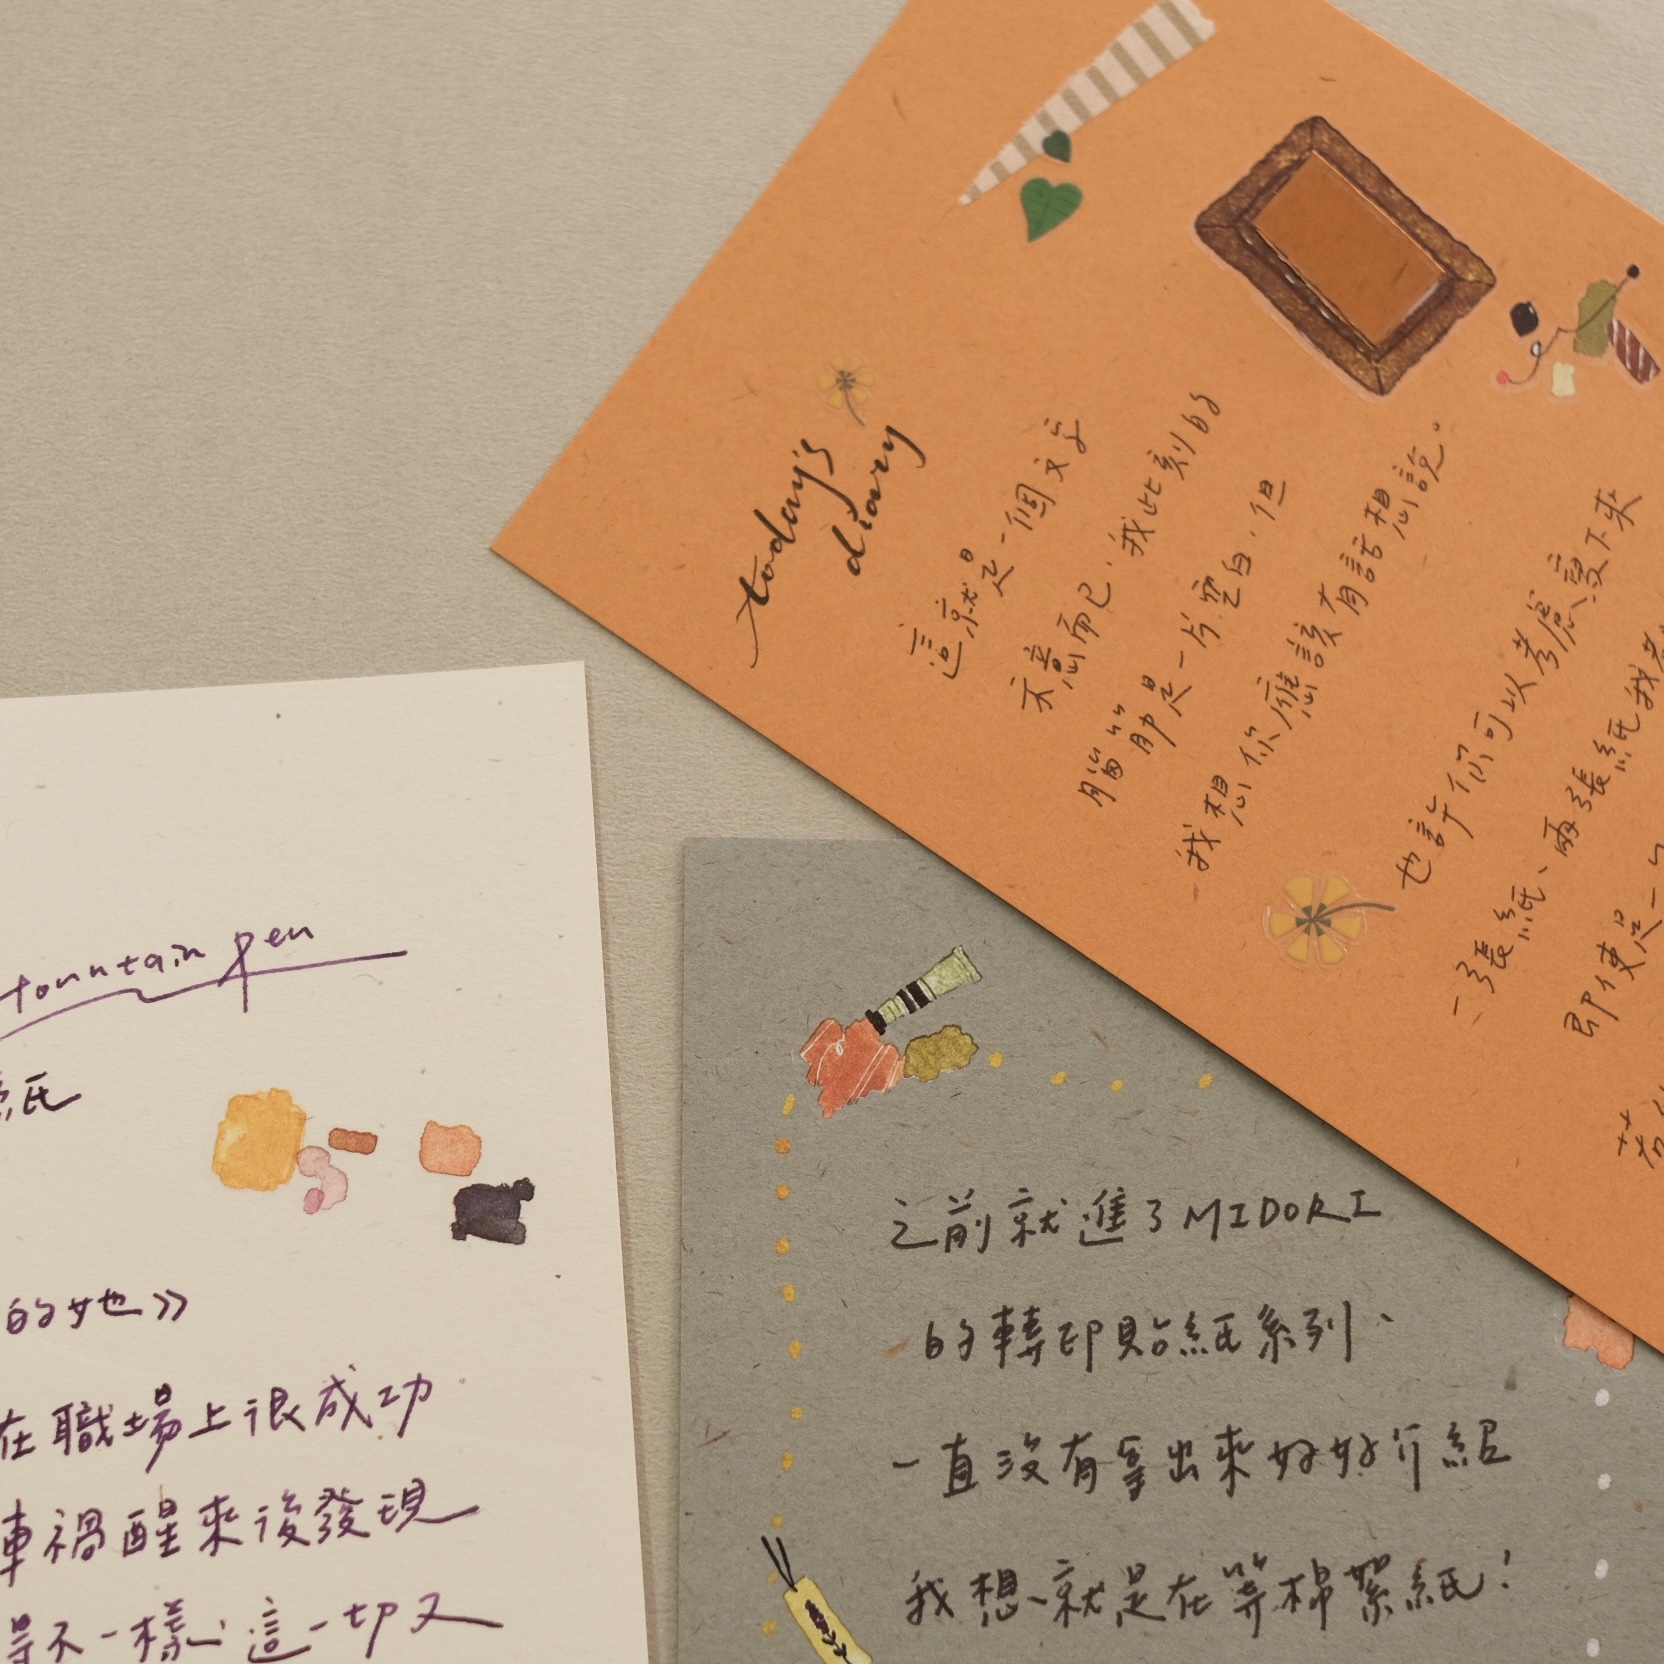 today's
diary
這就是一個文字
示意而已，我此刻的
腦筋是一片空白，但
我想你應該有話想說。
也許你可以考慮寫下來
一張紙、兩張紙我
即使是一
若
fountain pen
紙
的她》
在職場上很成功
車禍醒來後發現
得不一樣，這一切又
之前就進了MIDORI
的轉印貼紙系列、
一直沒有拿出來好好介紹
我想、就是在等棉絮紙！